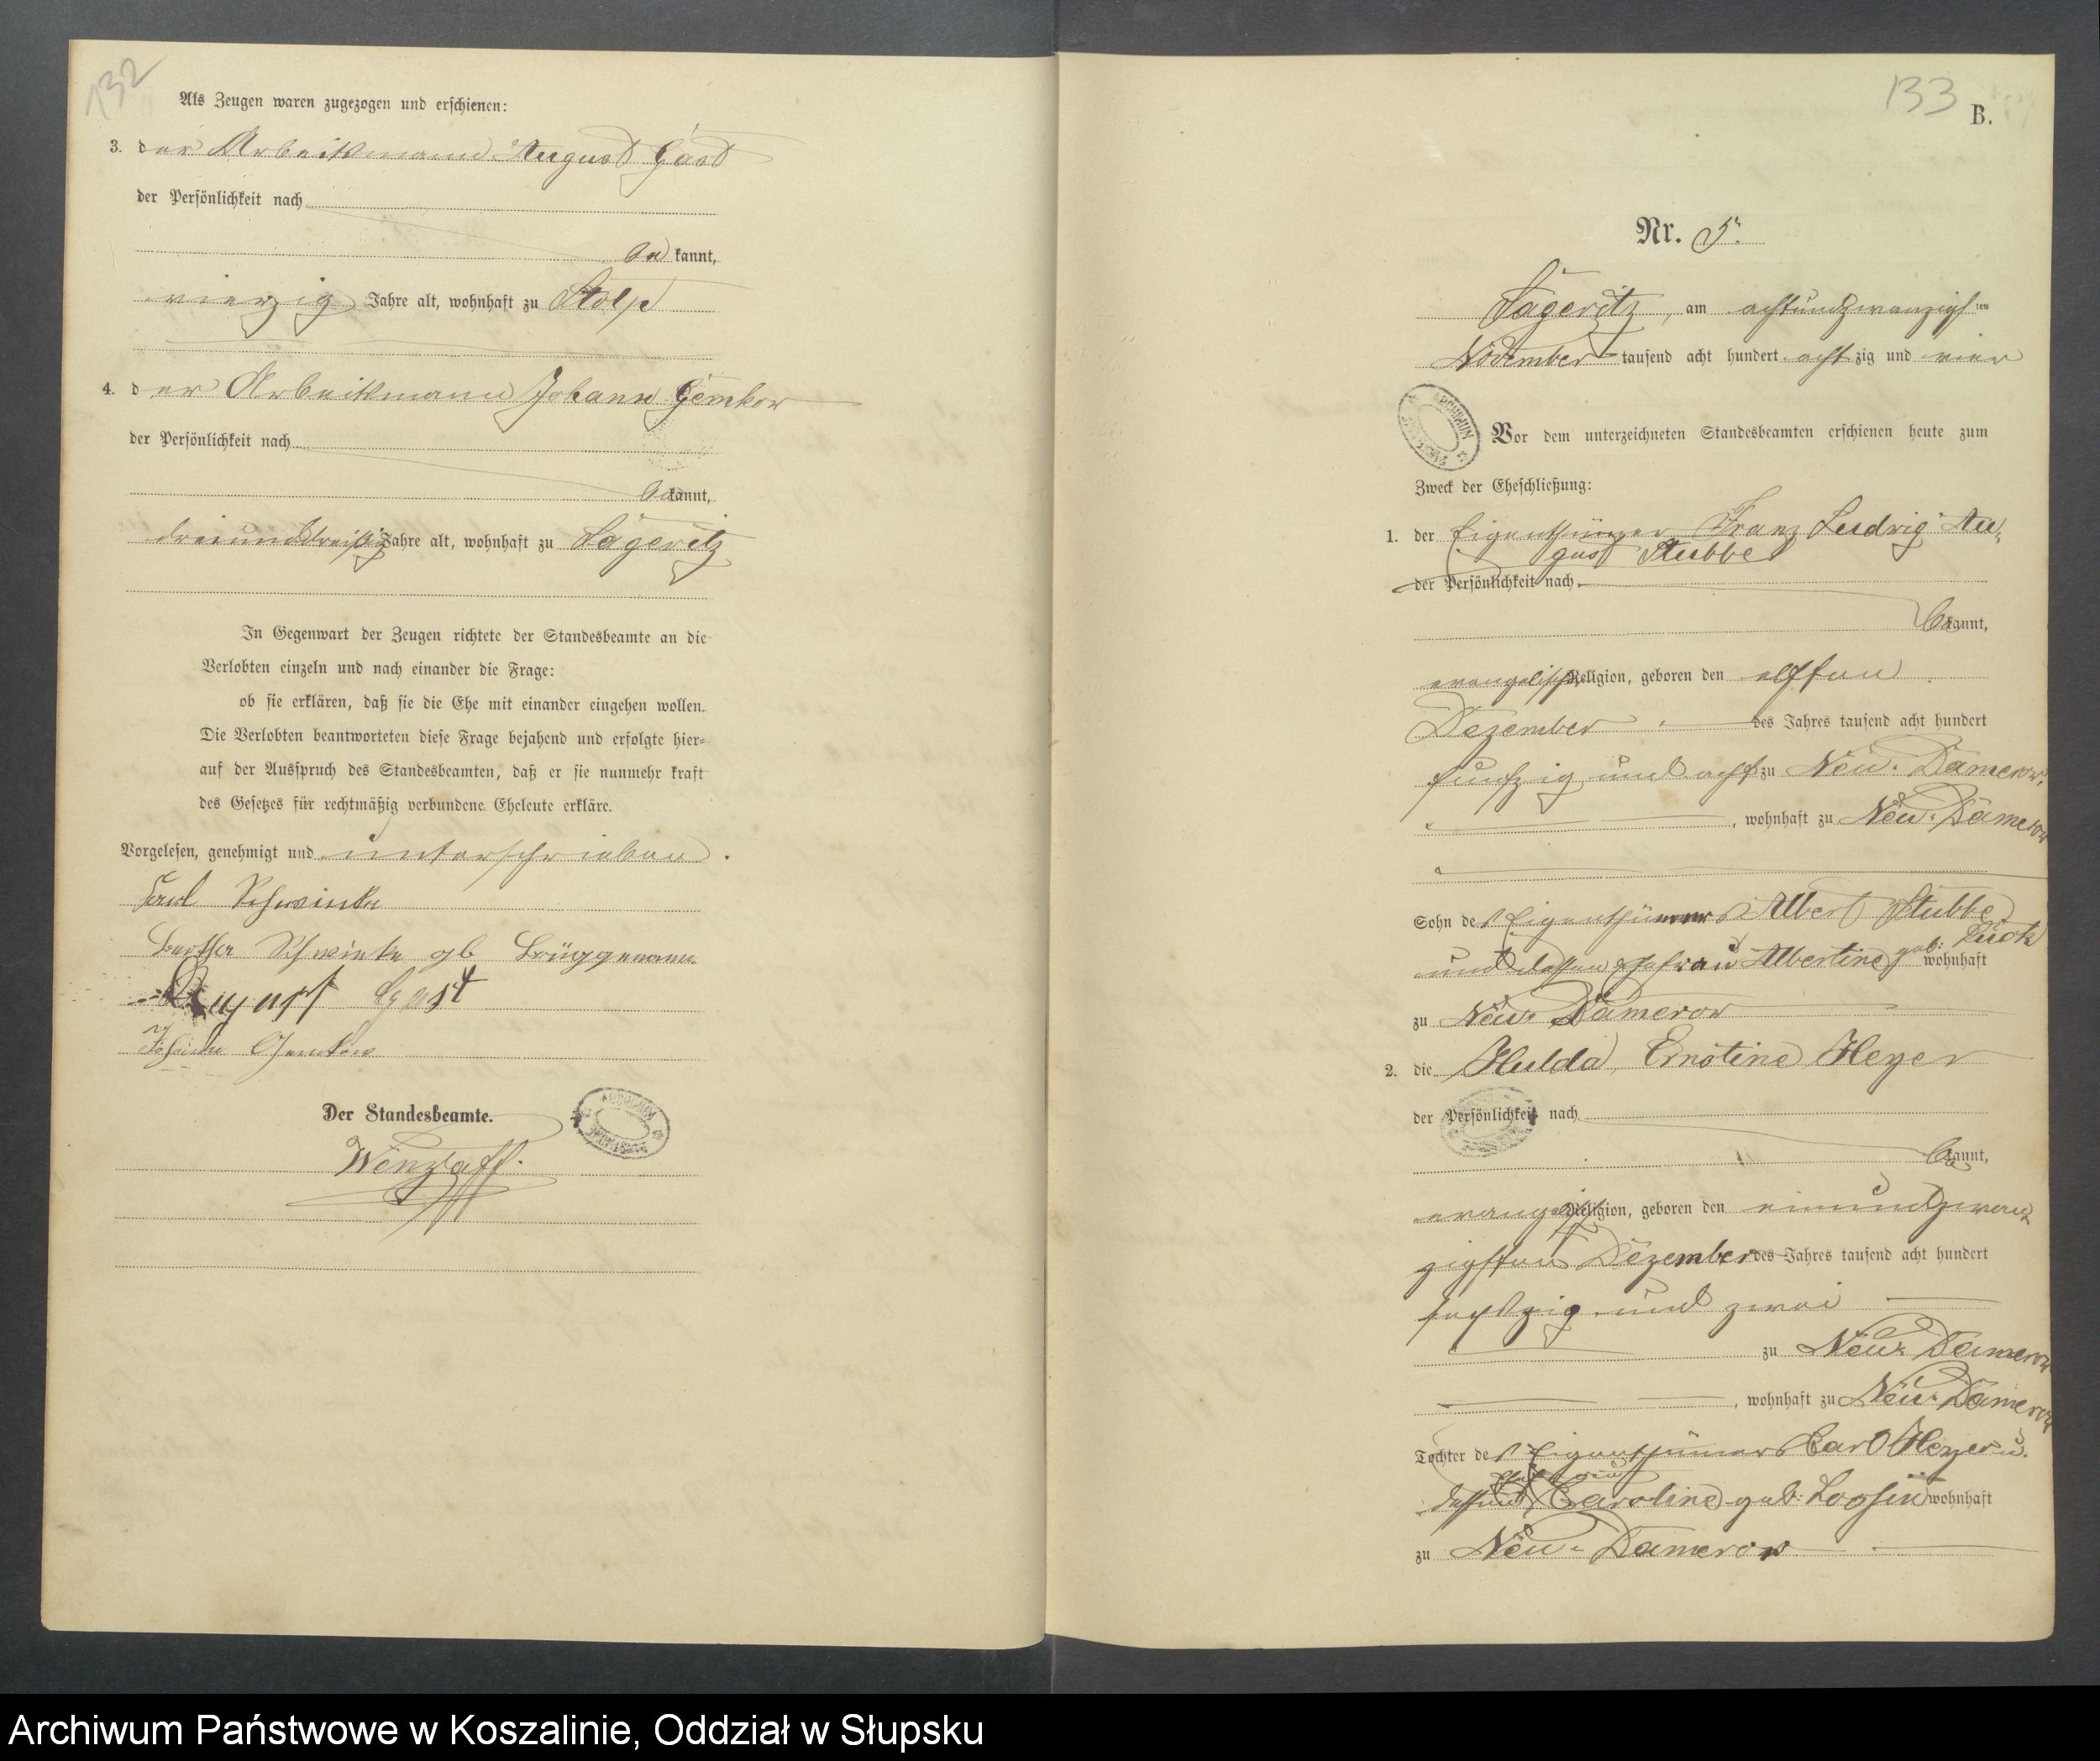 132
Als Zeugen waren zugezogen und erschienen:
3. der Arbeitsmann August Gast
der Persönlichkeit nach
be kannt,
vierzig Jahre alt, wohnhaft zu Stolp
4. der Arbeitsmann Johann Gemkow
der Persönlichkeit nach
be kannt,
dreiunddreißig Jahre alt, wohnhaft zu Lageritz
In Gegenwart der Zeugen richtete der Standesbeamte an die
Verlobten einzeln und nach einander die Frage:
ob sie erklären, daß sie die Ehe mit einander eingehen wollen.
Die Verlobten beantworteten diese Frage bejahend und erfolgte hier-
auf der Ausspruch des Standesbeamten, daß er sie nunmehr kraft
des Gesetzes für rechtmäßig verbundene Eheleute erkläre.
Vorgelesen, genehmigt und unterschrieben.
Karl Schwinke
Bertha Schwinke gb Brüggemann
August Gast
Johann Gemkow
Der Standesbeamte.
Wenzlaff.
133
B.
Nr. 5.
Lageritz, am achtundzwanzigsten
November tausend acht hundert achtzig und vier
Vor dem unterzeichneten Standesbeamten erschienen heute zum
Zweck der Eheschließung:
1. der Eigenthümer Franz Ludwig Au-
gust Stubbe
der Persönlichkeit nach
be kannt,
evangelischer Religion, geboren den elften
Dezember des Jahres tausend acht hundert
funfzig und acht zu Neu-Damerow,
, wohnhaft zu Neu-Damerow
Sohn des Eigenthümers Albert Stubbe
und dessen Ehefrau Albertine geb: Kuck
wohnhaft
zu Neu-Damerow
2. die Hulda Ernstine Heyer
der Persönlichkeit nach
be kannt,
evangelischer Religion, geboren den einundzwan-
zigsten Dezember des Jahres tausend acht hundert
sechszig und zwei
zu Neu-Damerow
, wohnhaft zu Neu-Damerow
Tochter des Eigenthümers Carl Heyer u.
dessen Ehefrau Caroline geb: Loosin wohnhaft
zu Neu-Damerow
Archiwum Państwowe w Koszalinie, Oddział w Słupsku